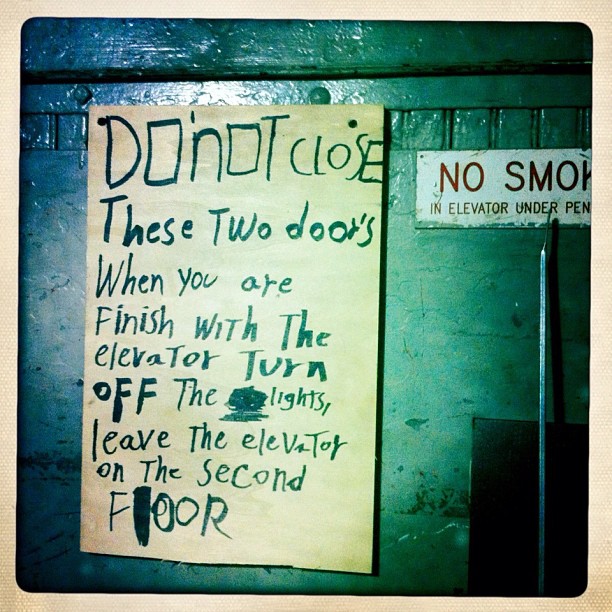 DO'nOT CLOSE
These Two door's
When you are
Finish with The
elevator Turn
OFF The lights,
leave The elevator
on The second
FlOOR
NO SMOK
IN ELEVATOR UNDER PEN